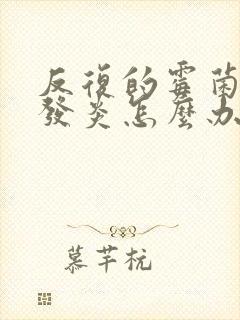 反復的霉菌
發炎怎麼办
慕芊杭